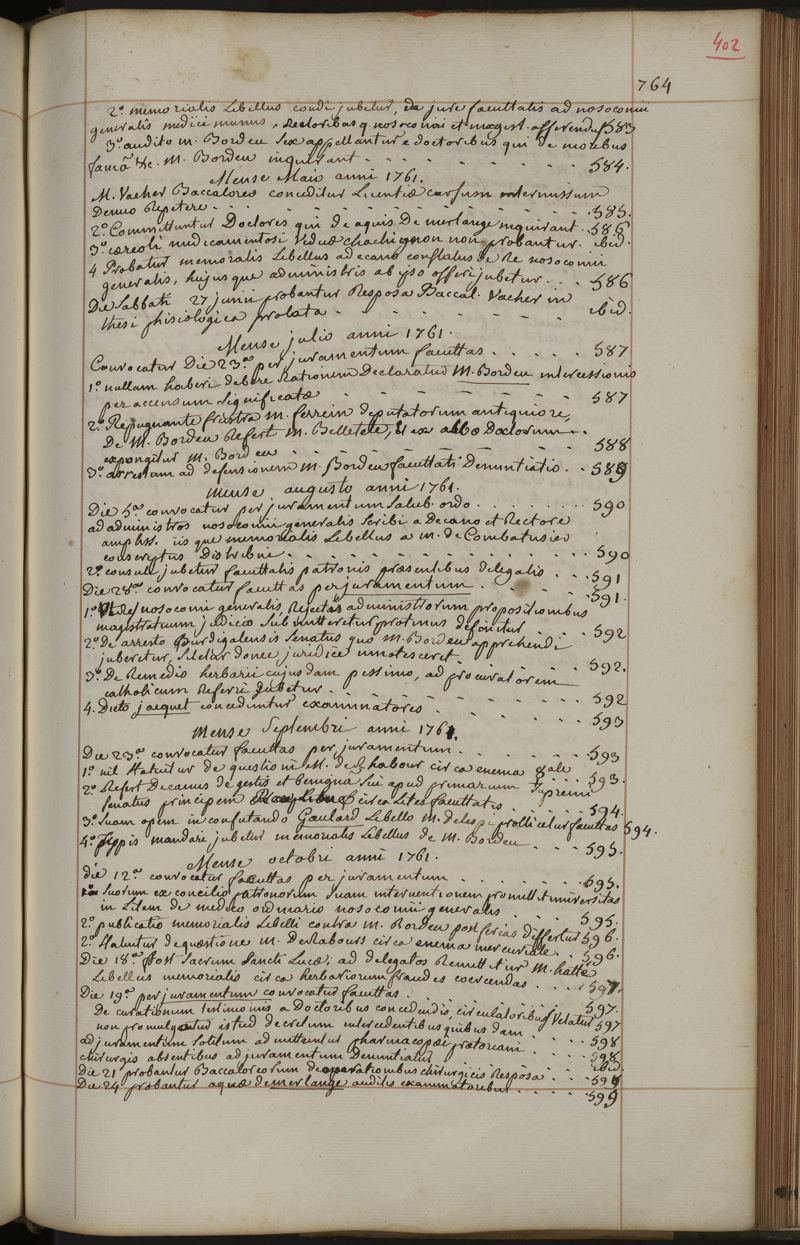 402
764
2º memorialis Libellus condi jubetur, de jure facultatis ad nosocomii
generalis medici munus, Rectoribus q nosocomii et magist. offerendus 583
3º audito M. Bordeu sex appellantur e doctoribus qui de moribus
famâ &c. M. Bordeu inquirant - - - - - - - 584.
Mense Maio anni 1761.
M. Vacher Baccaloreo conceditur Licentiæ cursum intermissum
Denuo Repetere - - - - - - - - - - 585.
2º Committuntur Doctores qui de aquis De merlange inquirant - 586
3º cereoli medicamentosi viduæ chachignon non probantur. ibid.
4 Probatur memorialis Libellus a decano conflatus de Re nosocomii
generalis, hujusque administris ab ipso offeri jubetur . . . 586
Die Sabbati 27 junii probantur Resposa Baccal. Vacher in
thesi phisiologica prolata - - - - - - - ibid.
Mense julio anni 1761.
Convocatur Die 23ª per juramentum facultas . . . . . 587
1º nullam haberi debere Rationem Declaratur M. Bordeu intercessionis
per accensum significatæ - - - - - - - 587
2º Repugnante frustra M. ferrein deputatorum antiquiore,
De M. Bordeu Refert M. Belletete, et ex albo Doctorum
expungitur M. Bordeu - - - - - - - 588
3º arrestum ad defensionem M. Bordeu facultati Denuntiatio . . 589
Mense augusto anni 1761.
Die 5ª convocatur per juramentum Salub. ordo . . . . . 590
ad administros nosocomii generalis scribi a Decano et Rectore
ampliss. iis que memorialis Libellus a M. de Combatusier
conscriptus Distribui - - - - - - - - - 590
2º consuli jubetur facultatis patronis præsentibus delegatis . . . 591
Die 28ª convocatur facultas per juramentum . . . . 591.
1º nosocomii generalis, Rejectis administrorum propositionibus
magistratuum judicio submitteretur protinus definitur . . . 592
2º de arresto Burdigalensis senatus quo M. Bordeu apprehendi
juberetur, siletur donec juridice innotesceret . . . . 592.
3º De Remedio herbarii cujusdam pessimo, ad procuratorem
catholicum Referri jubetur . . . . . . . 592
4. Dicto jacquet conceduntur examinatores . . . . . . 593
Mense Septembri anni 1761.
Die 23ª convocatur facultas per juramentum . . . . . 593
1º nil statuitur de questioni M. des Rhabour circa enema gale . . 593.
2º Refert Decanus de gestis et benigna sui apud primarium Supremi
senatus principem circa Lites facultatis . . . . 594.
3º Suam opem in confutando Gaulard Libello M. delespi pollicitur facultas 594.
4º typis mandari jubetur memorialis Libellus de M. Bordeu . . . 595.
Mense octobri anni 1761.
die 12ª convocatur facultas per juramentum . . . . . . 595.
1º Suorum ex concilio patronorum suam interventionem promittit universitas
in Litem de medico ordinario nosocomii generalis . . . . 595.
2º publicatio memorialis Libelli contra M. Bordeu post ferias differtur 596.
2º Statuitur de quæstione M. DesRabours circa enema mercuriale . . 596.
Die 18ª Post Sacrum Sancti Lucæ, ad delegatos Remittitur M. hatté
Libellus memorialis circa herbariorum fraudes coercendas . . . 597.
Die 19ª per juramentum convocatur facultas . . . . . . 597.
De curationum testimoniis a Doctoribus concedendis, circulatoribus Vetatur 597
non promulgatur istud decretum intercedentibus quibusdam . . . 598
ad juramentum solitum admittuntur pharmacopæi prætoriani . . . 598
chirurgis absentibus ad juramentum Denuntiatur . . . . ibid.
Die 21 probantur Baccaloreorum de operationibus chirurgicis Resposa . . . 599
Die 24 probantur aquæ de merlange auditis examinatoribus . . . . 599